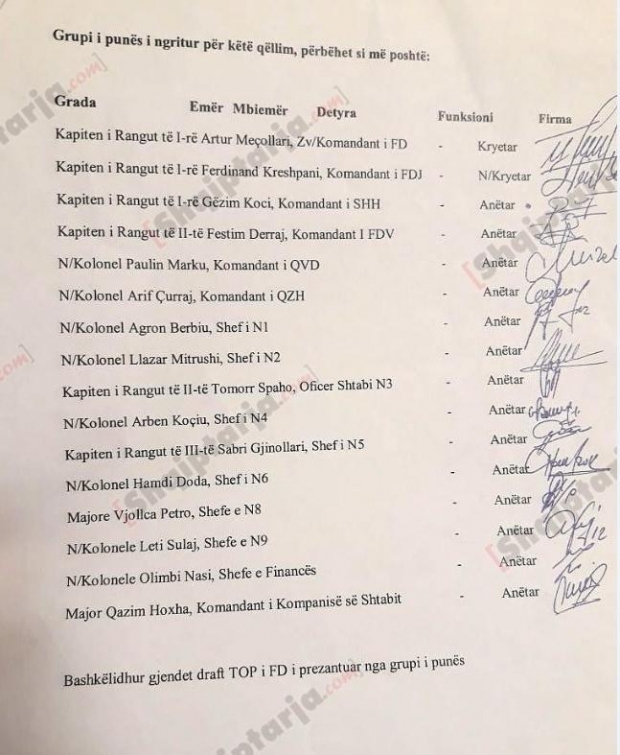 Grupi i punës i ngritur për këtë qëllim, përbëhet si më poshtë:
Grada Emër Mbiemër Detyra Funksioni Firma
Kapiten i Rangut të I-rë Artur Meçollari, Zv/Komandant i FD - Kryetar
Kapiten i Rangut të I-rë Ferdinand Kreshpani, Komandant i FDJ - N/Kryetar
Kapiten i Rangut të I-rë Gëzim Koci, Komandant i SHH - Anëtar
Kapiten i Rangut të II-të Festim Derraj, Komandant I FDV - Anëtar
N/Kolonel Paulin Marku, Komandant i QVD - Anëtar
N/Kolonel Arif Çurraj, Komandant i QZH - Anëtar
N/Kolonel Agron Berbiu, Shef i N1 - Anëtar
N/Kolonel Llazar Mitrushi, Shef i N2 - Anëtar
Kapiten i Rangut të II-të Tomorr Spaho, Oficer Shtabi N3 - Anëtar
N/Kolonel Arben Koçiu, Shef i N4 - Anëtar
Kapiten i Rangut të III-të Sabri Gjinollari, Shef i N5 - Anëtar
N/Kolonel Hamdi Doda, Shef i N6 - Anëtar
Majore Vjollca Petro, Shefe e N8 - Anëtar
N/Kolonele Leti Sulaj, Shefe e N9 - Anëtar
N/Kolonele Olimbi Nasi, Shefe e Financës - Anëtar
Major Qazim Hoxha, Komandant i Kompanisë së Shtabit - Anëtar
Bashkëlidhur gjendet draft TOP i FD i prezantuar nga grupi i punës
[Shqiptarja.com]